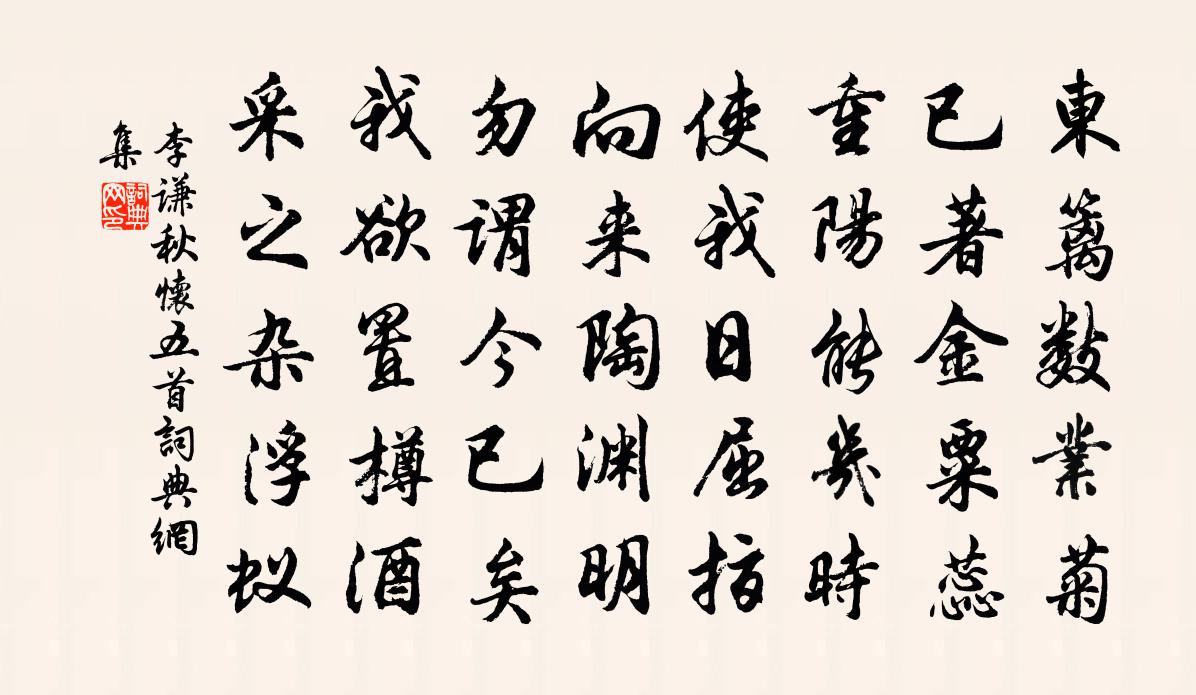 東篱数業菊
已著金粟蕊
重陽能幾時
使我日屈指
向来陶渊明
勿谓今已矣
我欲置樽酒
采之杂浮蚁
李谦秋懷五首詞典網
集
詞典
网印